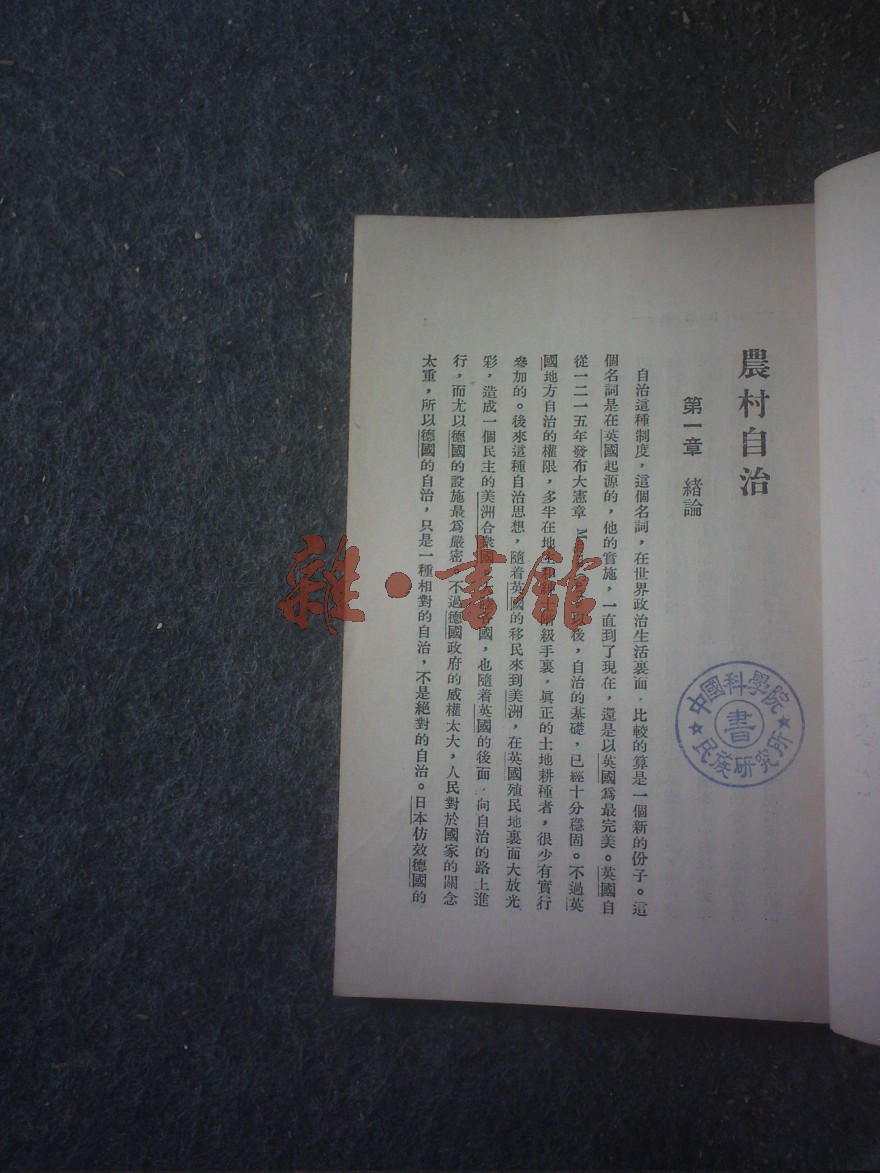 農村自治
第一章 緒論
自治這種制度，這個名詞，在世界政治生活裏面，比較的算是一個新的份子。這
個名詞是在英國起源的，他的實施，一直到了現在，還是以英國爲最完美。英國自
從一二一五年發布大憲章 以後，自治的基礎，已經十分穩固。不過英
國地方自治的權限，多半在地 級手裏，眞正的土地耕種者，很少有實行
參加的。後來這種自治思想，隨着英國的移民來到美洲，在英國殖民地裏面大放光
彩，造成一個民主的美洲合衆國。 國，也隨着英國的後面，向自治的路上進
行，而尤以德國的設施最爲嚴密。不過德國政府的威權太大，人民對於國家的關念
太重，所以德國的自治，只是一種相對的自治，不是絕對的自治。日本仿效德國的
中國科學院
書
民族研究所
雜·書館